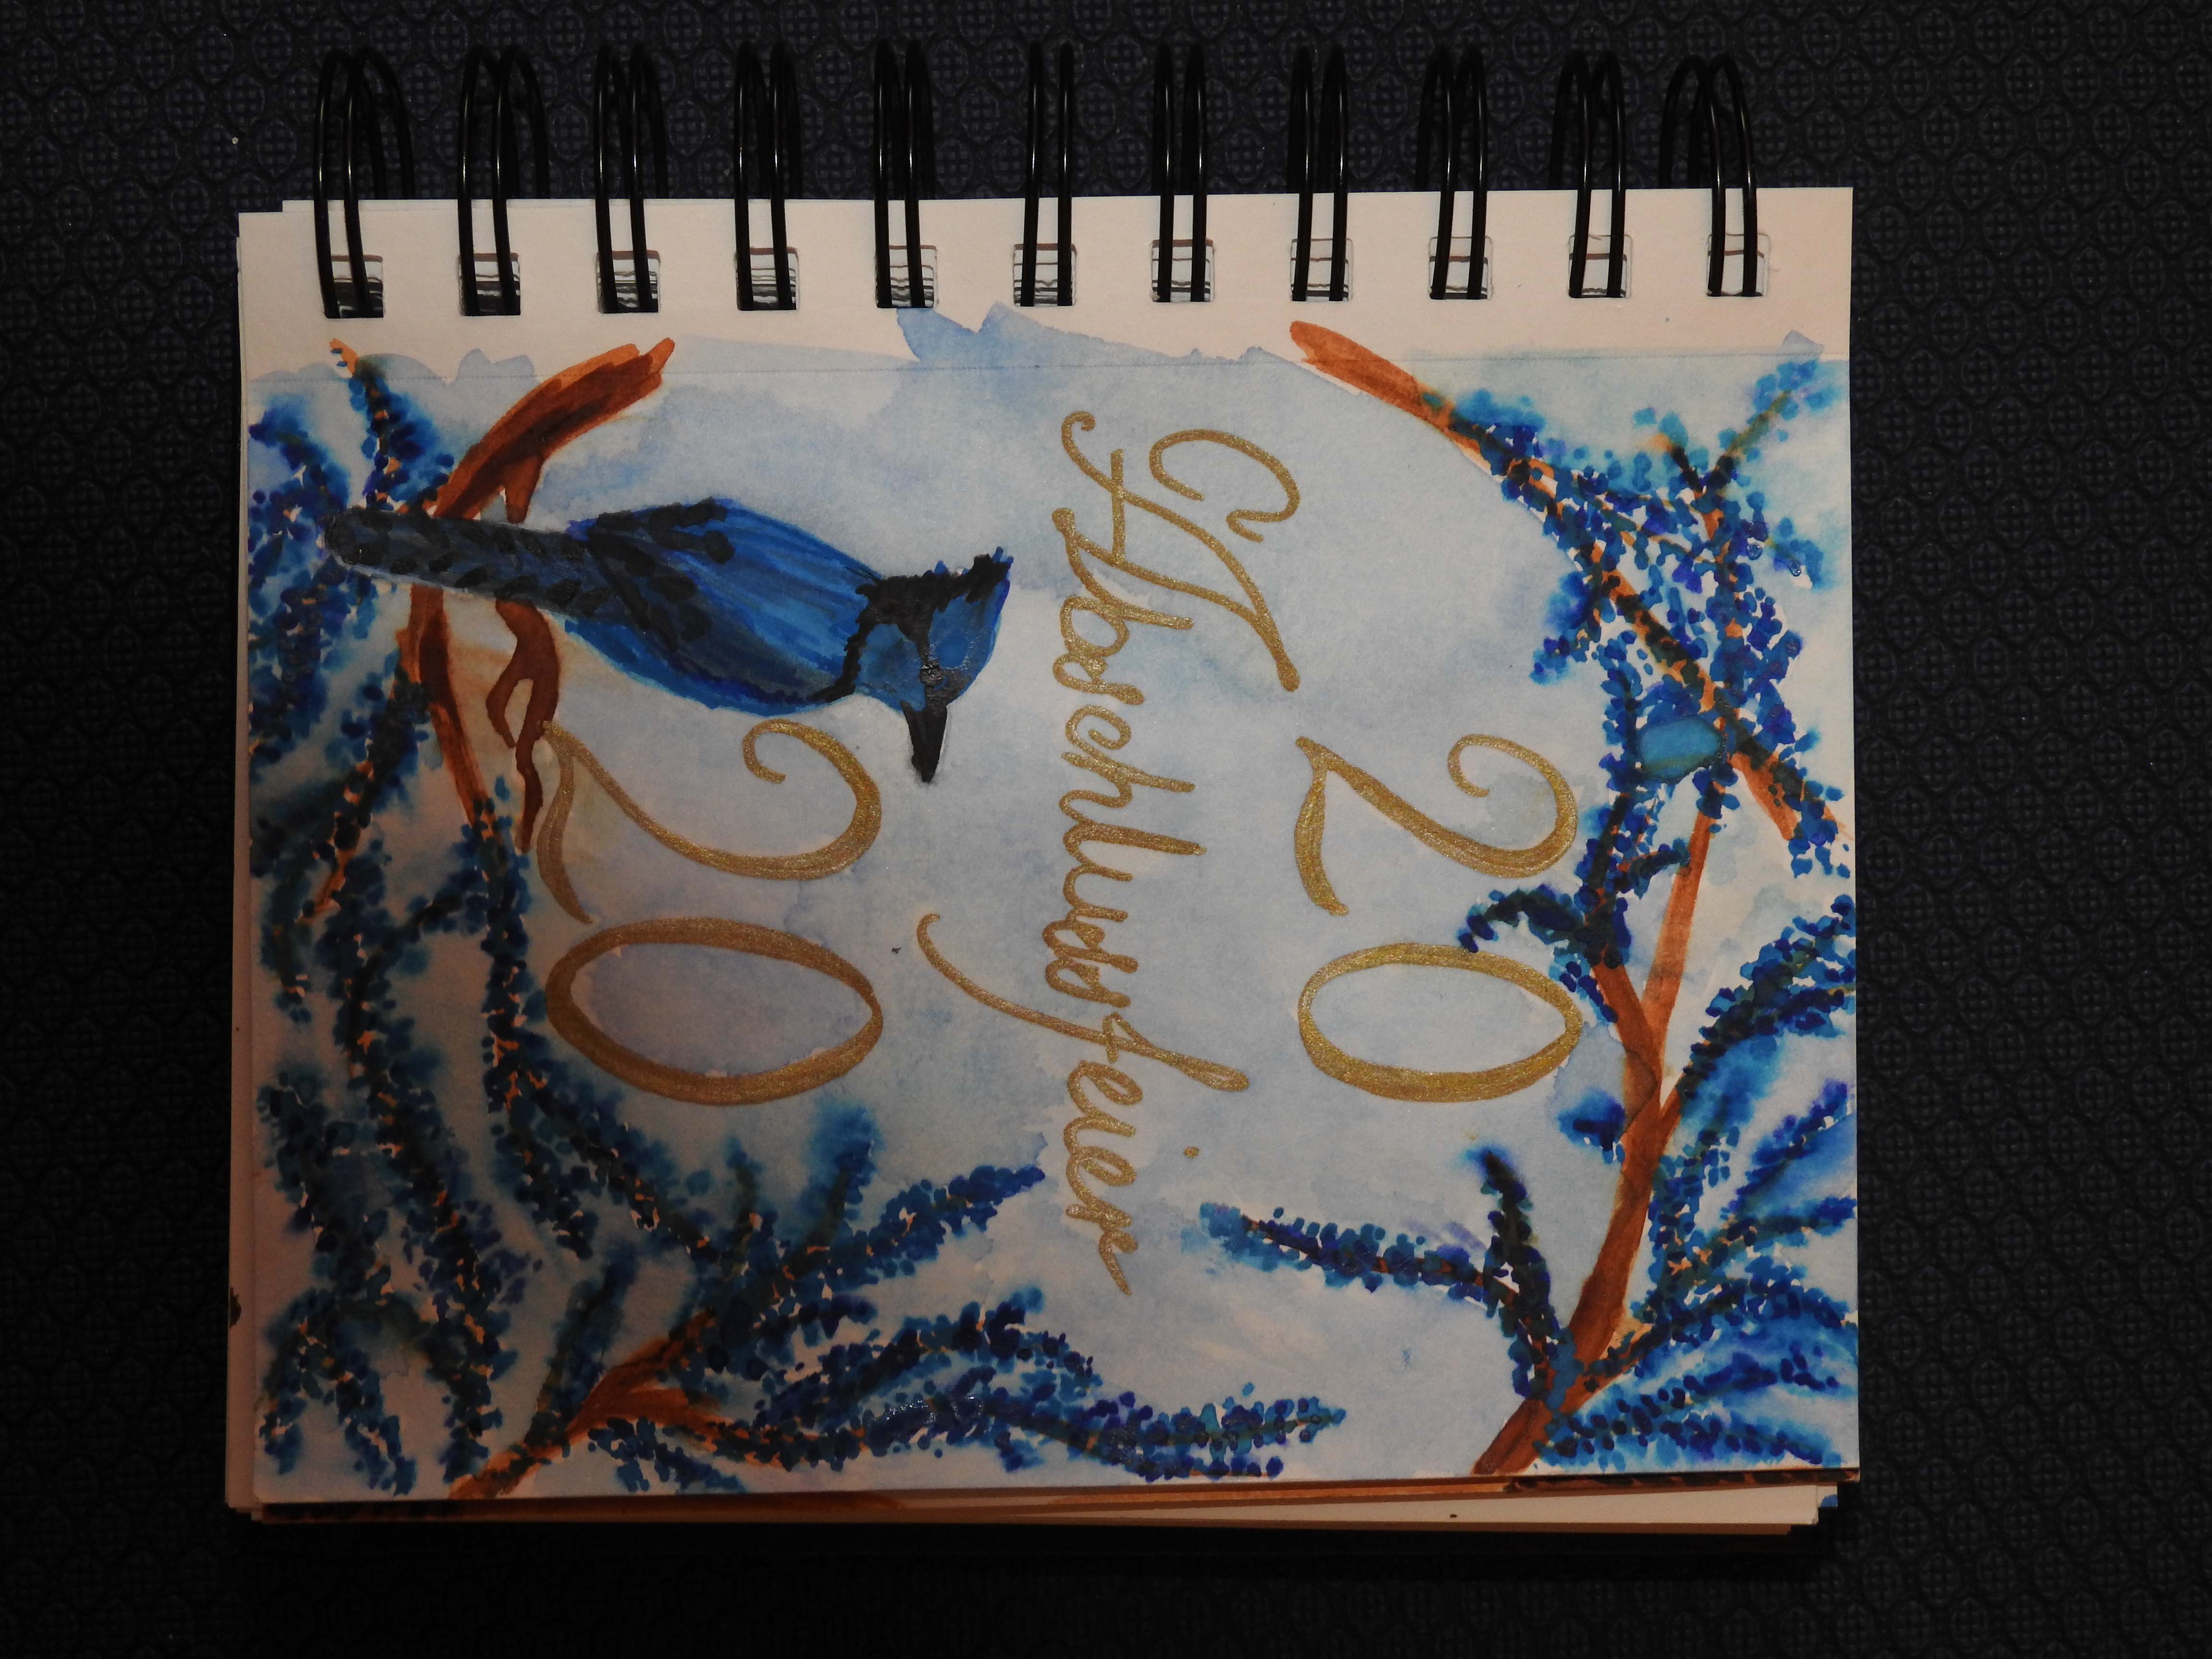 20
Abschlussfeier
20